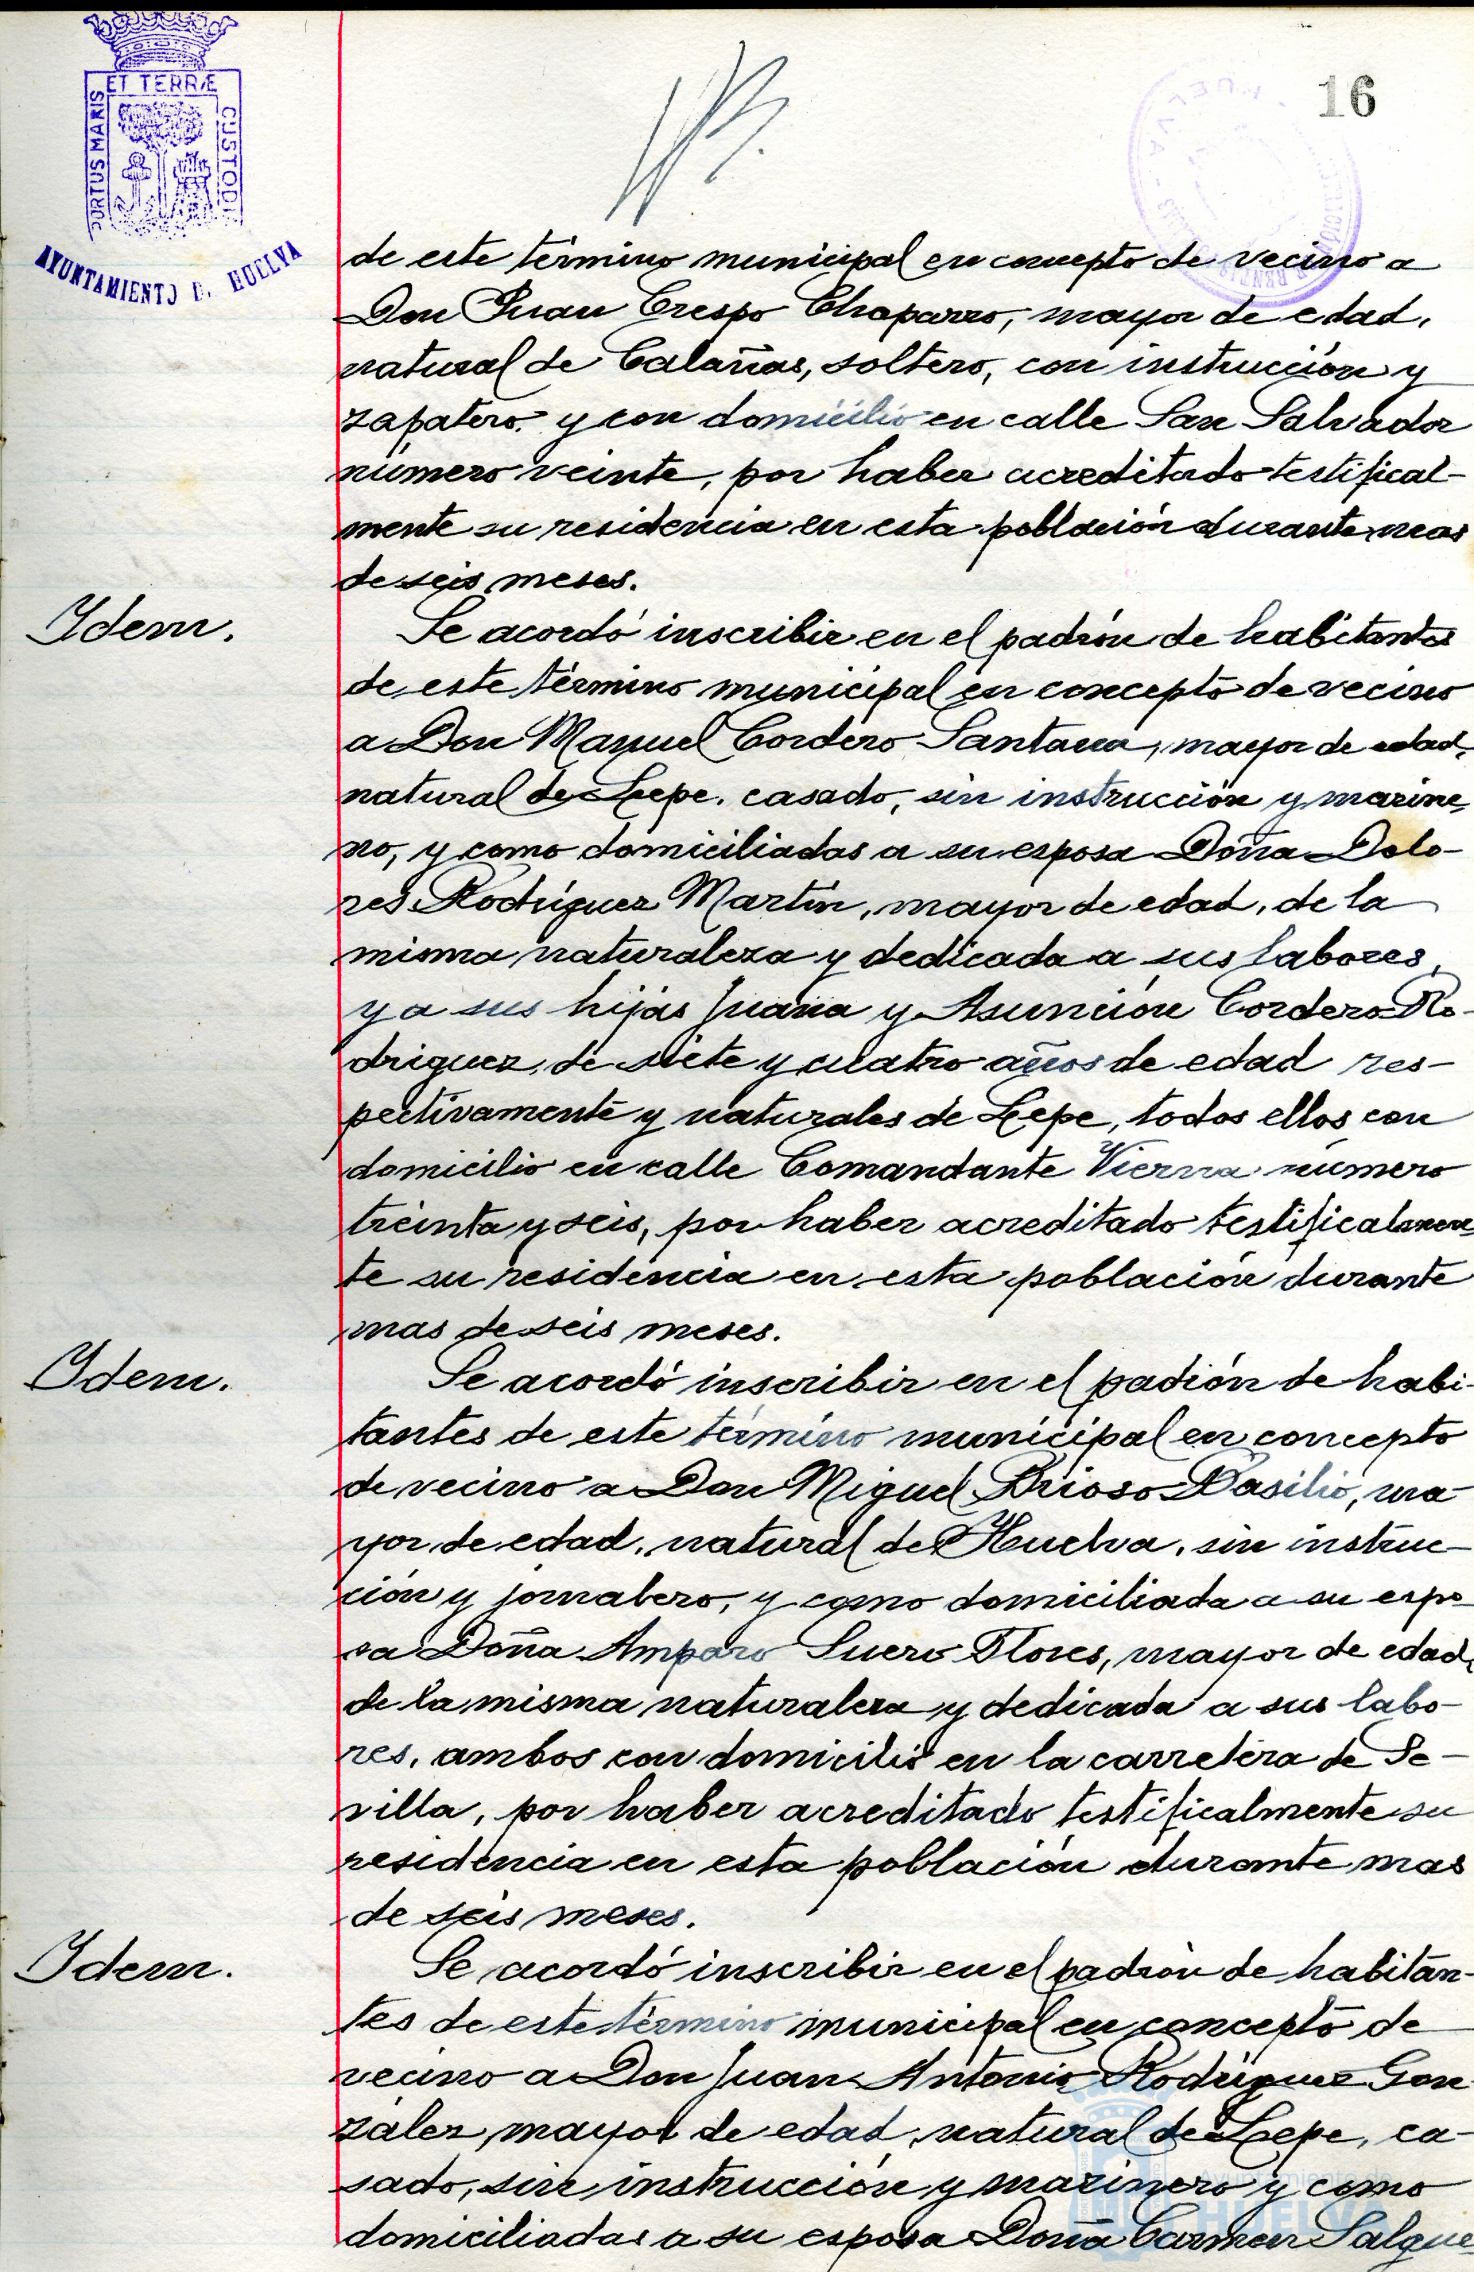 PORTUS MARIS ET TERRÆ CUSTODI
AYUNTAMIENTO D. HUELVA
16
de este término municipal en concepto de vecino a
Don Juan Crespo Chaparro, mayor de edad,
natural de Calañas, soltero, con instrucción y
zapatero y con domicilio en calle San Salvador
número veinte, por haber acreditado testifical-
mente su residencia en esta población durante mas
de seis meses.
Idem.
Se acordó inscribir en el padrón de habitantes
de este término municipal en concepto de vecino
a Don Manuel Cordero Santana, mayor de edad,
natural de Lepe, casado, sin instrucción y marine-
ro, y como domiciliadas a su esposa Doña Dolo-
res Rodríguez Martín, mayor de edad, de la
misma naturaleza y dedicada a sus labores,
y a sus hijas Juana y Asunción Cordero Ro-
driguez, de siete y cuatro años de edad res-
pectivamente y naturales de Lepe, todos ellos con
domicilio en calle Comandante Vierna número
treinta y seis, por haber acreditado testificalmen-
te su residencia en esta población durante
mas de seis meses.
Idem.
Se acordó inscribir en el padrón de habi-
tantes de este término municipal en concepto
de vecino a Don Miguel Brioso Basilio, ma-
yor de edad, natural de Huelva, sin instruc-
ción y jornalero, y como domiciliada a su espo-
sa Doña Amparo Suero Flores, mayor de edad,
de la misma naturaleza y dedicada a sus labo-
res, ambos con domicilio en la carretera de Se-
villa, por haber acreditado testificalmente su
residencia en esta población durante mas
de seis meses.
Idem.
Se acordó inscribir en el padrón de habitan-
tes de este término municipal en concepto de
vecino a Don Juan Antonio Rodríguez Gon-
zález, mayor de edad, natural de Lepe, ca-
sado, sin instrucción y marinero y como
domiciliadas a su esposa Doña Carmen Salgue-
Ayuntamiento de
HUELVA